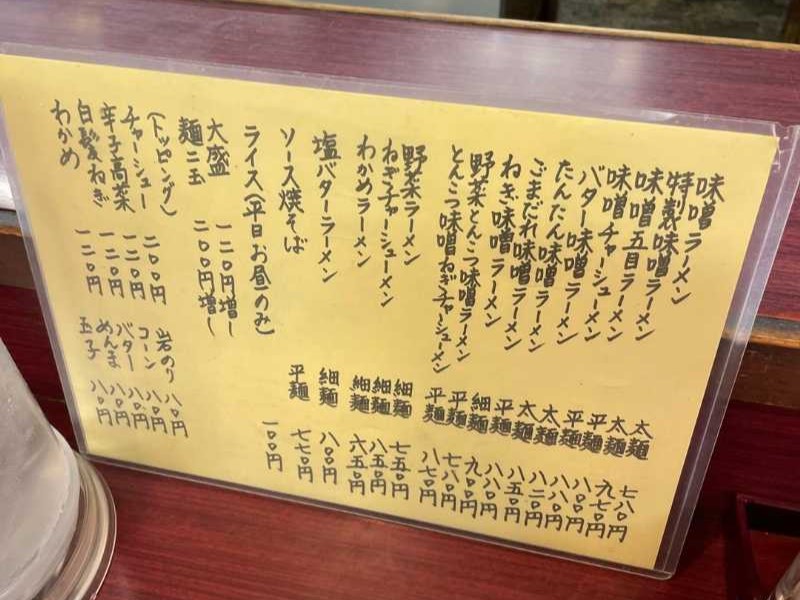 味噌ラーメン 太麺 七八〇円
特製味噌ラーメン 太麺 九七〇円
味噌五目ラーメン 平麺
味噌チャーシューメン 平麺 八八〇円
バター味噌ラーメン 太麺 八二〇円
たんたん味噌ラーメン 太麺 八五〇円
ごまだれ味噌ラーメン 平麺
ねぎ味噌ラーメン 細麺 九〇〇円
野菜とんこつ味噌ラーメン 平麺 七八〇円
とんこつ味噌ねぎチャーシューメン 平麺 八七〇円
野菜ラーメン 細麺 七五〇円
ねぎチャーシューメン 細麺 八五〇円
わかめラーメン 細麺 六五〇円
塩バターラーメン 細麺 八〇〇円
ソース焼そば 平麺 七七〇円
ライス(平日お昼のみ) 一〇〇円
大盛 一二〇円増し
麺二玉 二〇〇円増し
(トッピング)
チャーシュー 二〇〇円
辛子高菜 一二〇円
白髪ねぎ 一二〇円
わかめ 一二〇円
岩のり 八〇円
コーン 八〇円
バター 八〇円
めんま 八〇円
玉子 八〇円